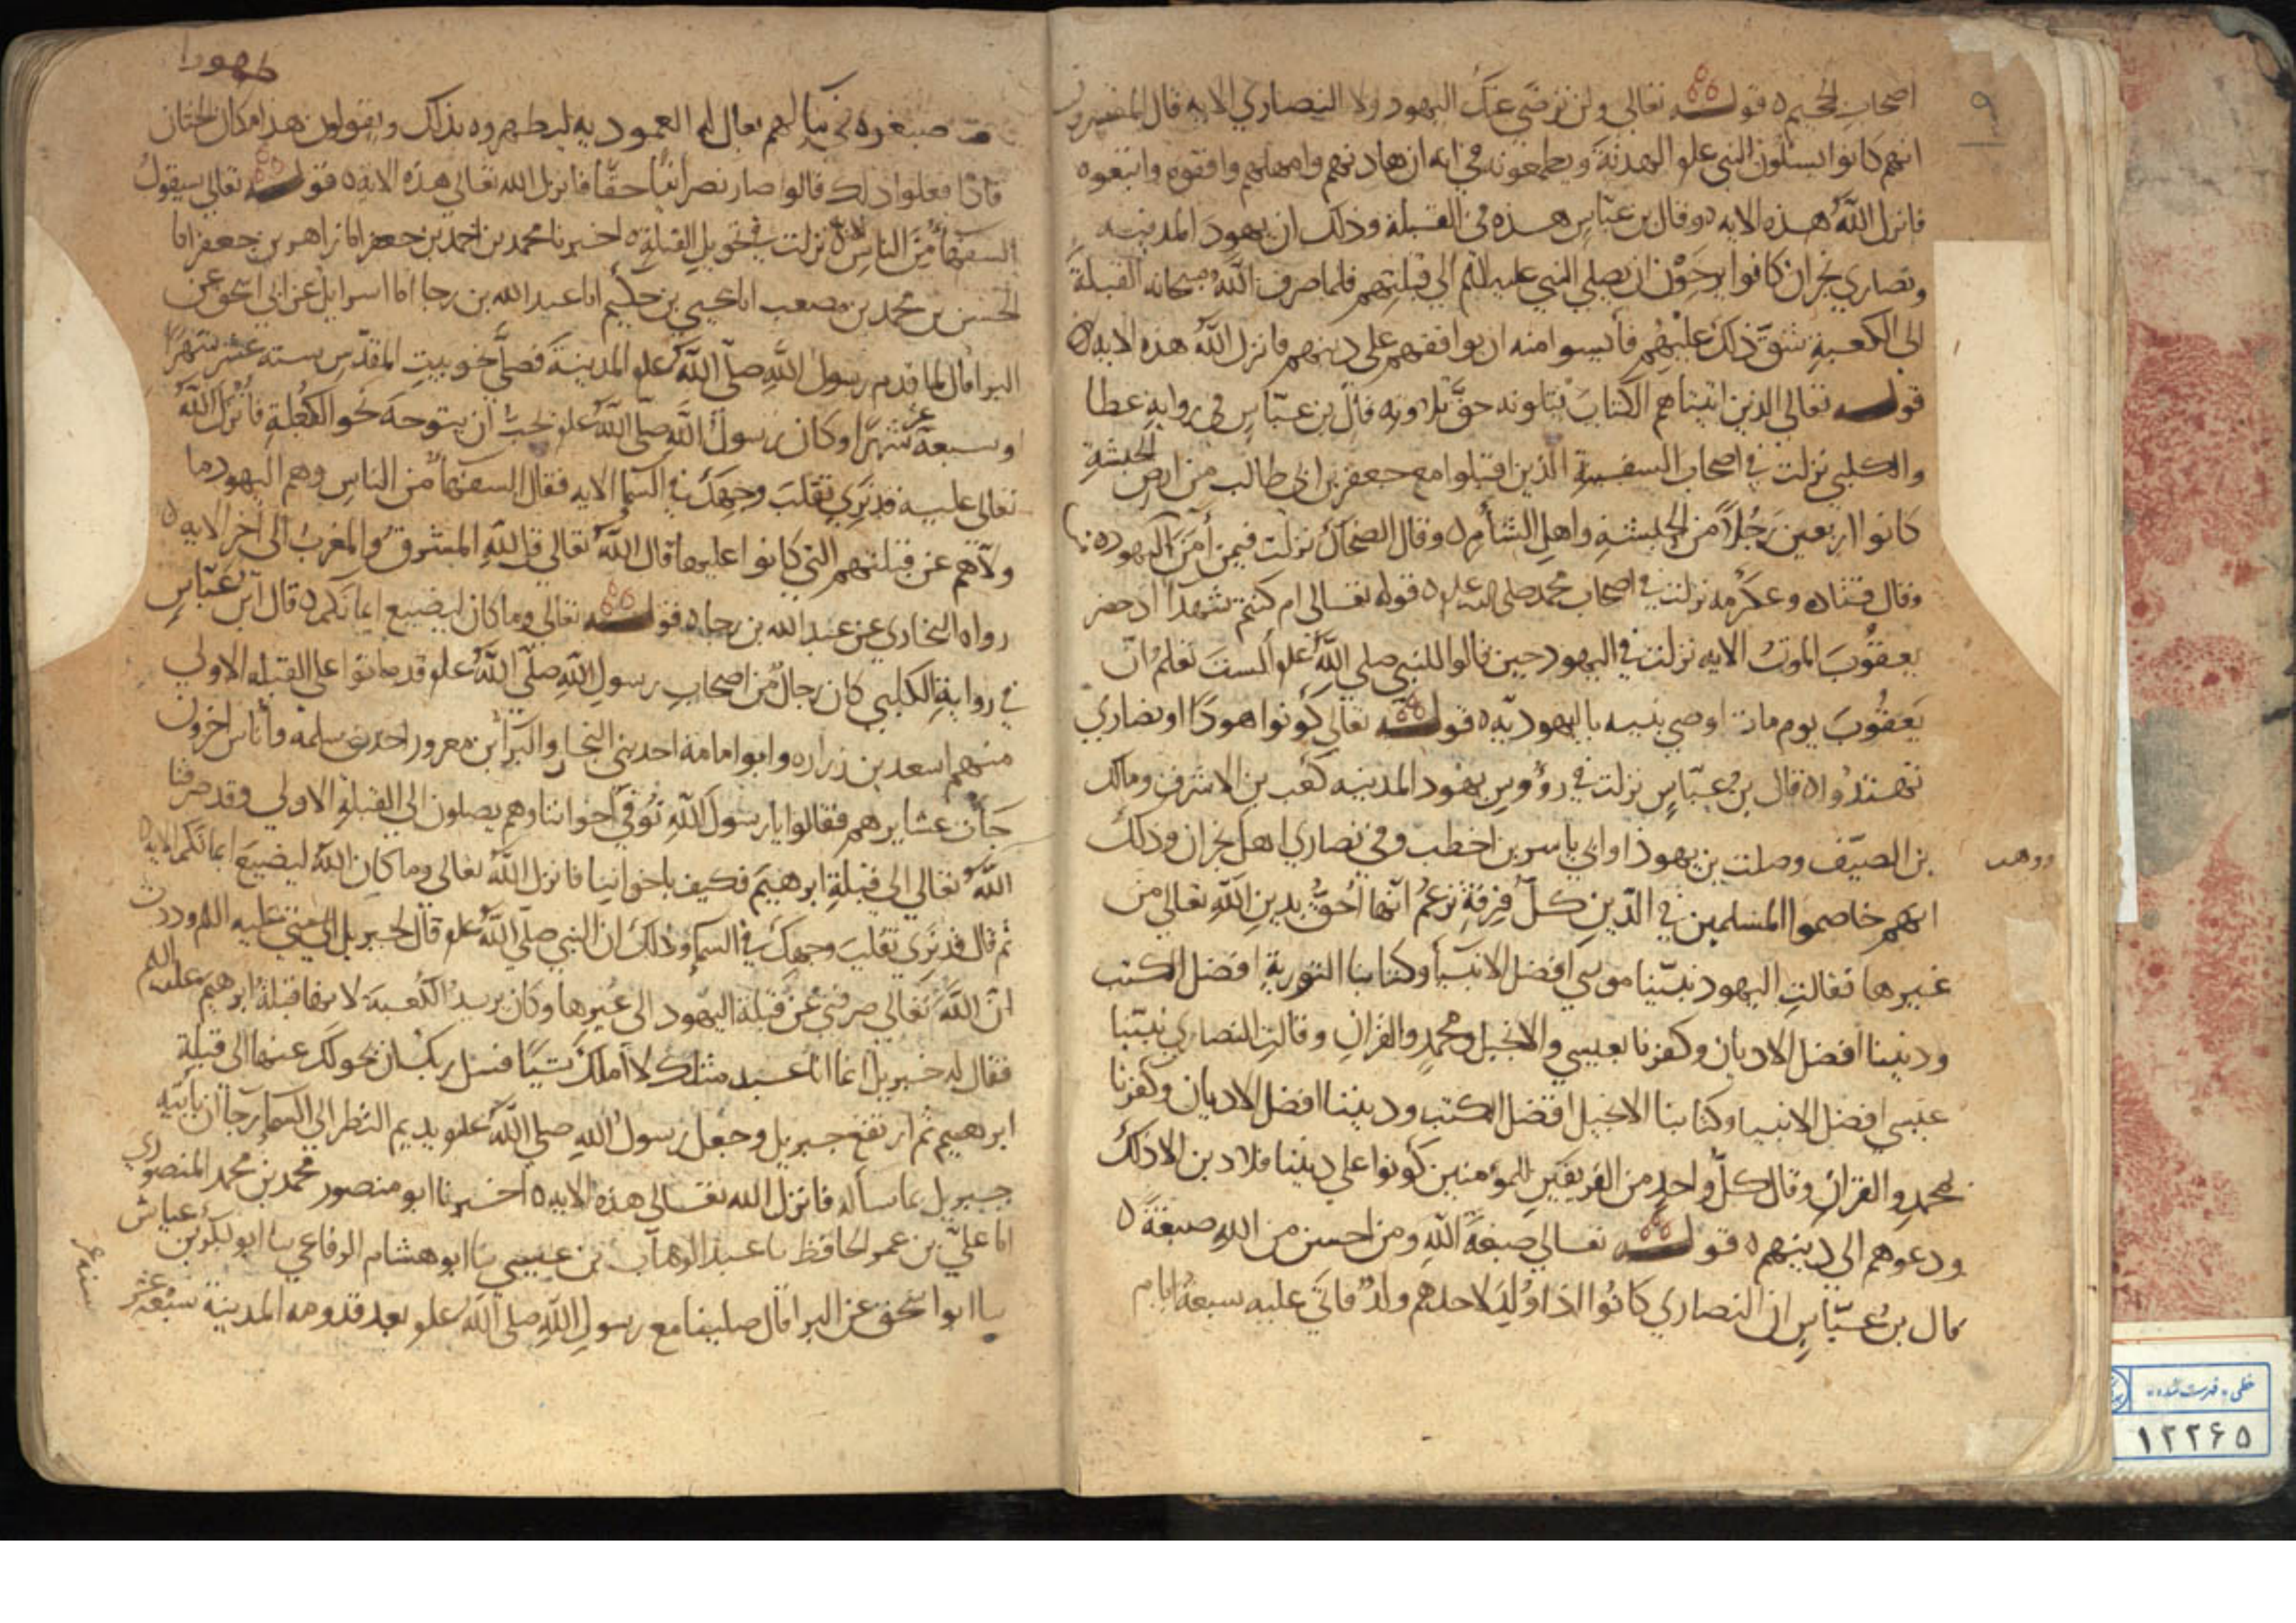 اصحاب الجحيم ٥ قوله تعالى ولن ترضى عنك اليهود ولا النصارى الايه قال المفسرون
انهم كانوا يسئلون النبي علم الهدنة ويطمعونه في انه ان هادنهم وامهلهم وافقوه واتبعوه
فانزل الله هذه الايه ٥ وقال بن عباس هذه في القبلة وذلك ان يهود المدينه
ونصاري نجران كانوا يرجون ان يصلي النبي عليه السلم الى قبلتهم فلما صرف الله سبحانه القبلة
الى الكعبة شق ذلك عليهم فأيسوا منه ان يوافقهم على دينهم فانزل الله هذه الايه ٥
قوله تعالى الذين اتيناهم الكتاب يتلونه حق تلاوته قال بن عباس في رواية عطا
والكلبي نزلت في اصحاب السفينة الذين اقبلوا مع جعفر بن ابي طالب من ارض الحبشة
كانوا اربعين رجلا من الحبشة واهل الشام ٥ وقال الضحاك نزلت فيمن آمن من اليهود
وقال قتاده وعكرمه نزلت في اصحاب محمد صلى الله علم ٥ قوله تعالى ام كنتم شهدا اذ حضر
يعقوب الموت الايه نزلت في اليهود حين قالوا للنبي صلى الله علم ألست تعلم ان
يعقوب يوم مات اوصى بنيه باليهوديه ٥ قوله تعالى كونوا هودا او نصاري
تهتدوا ٥ قال بن عباس نزلت في رؤوس يهود المدينه كعب بن الاشرف ومالك
بن الصيف وصلت بن يهوذا وابي ياسر بن اخطب وفي نصارى اهل نجران وذلك
انهم خاصموا المسلمين في الدين كل فرقة تزعم انها احق بدين الله تعالى من
غيرها فقالت اليهود نبينا موسى افضل الانبيا وكتابنا التورية افضل الكتب
وديننا افضل الاديان وكفرنا بعيسى والانجيل ومحمد والقران وقالت النصارى نبينا
عيسى افضل الانبيا وكتابنا الانجيل افضل الكتب وديننا افضل الاديان وكفرنا
بمحمد والقران وقال كل واحد من الفريقين للمؤمنين كونوا على ديننا فلا دين الا ذلك
ودعوهم الى دينهم ٥ قوله تعالى صبغة الله ومن احسن من الله صبغة ٥
قال بن عباس ان النصارى كانوا اذا ولد لاحدهم ولد فاتى عليه سبعة ايام
طهورا
صبغوه في ما لهم يقال له العموديه ليطهروه بذلك ويقولون هذا مكان الختان
فاذا فعلوا ذلك قالوا صار نصرانيا حقا فانزل الله تعالى هذه الاية ٥ قوله تعالى سيقول
السفهاء من الناس الاية نزلت في تحويل القبلة ٥ اخبرنا محمد بن احمد بن جعفر انا زاهر بن جعفر انا
الحسن بن محمد بن مصعب انا يحيى بن حكيم انا عبد الله بن رجا انا اسرايل عن ابي اسحق عن
البرا قال لما قدم رسول الله صلى الله علم المدينة فصلى نحو بيت المقدس سته عشر شهرا
او سبعة عشر شهرا وكان رسول الله صلى الله علم يحب ان يتوجه نحو الكعبة فانزل الله
تعالى عليه قد نرى تقلب وجهك في السما الايه فقال السفهاء من الناس وهم اليهود ما
ولاهم عن قبلتهم التي كانوا عليها قال الله تعالى قل لله المشرق والمغرب الى اخر الايه ٥
رواه البخاري عن عبد الله بن رجا ٥ قوله تعالى وما كان ليضيع ايمانكم ٥ قال ابن عباس
في رواية الكلبي كان رجال من اصحاب رسول الله صلى الله علم قد ماتوا على القبله الاولى
منهم اسعد بن زراره وابو امامة احد بني النجار والبرا بن معرور احد بني سلمه وأناس اخرون
جات عشايرهم فقالوا يا رسول الله توفي اخواننا وهم يصلون الى القبلة الاولى وقد صرفنا
الله تعالى الى قبلة ابرهيم فكيف باخواننا فانزل الله تعالى وما كان الله ليضيع ايمانكم الايه ٥
ثم قال قد نرى تقلب وجهك في السما وذلك ان النبي صلى الله علم قال لجبريل عليه السلم وددت
ان الله تعالى صرفني عن قبلة اليهود الى غيرها وكان يريد الكعبة لانها قبلة ابرهيم عليه السلم
فقال له جبريل انما انا عبد مثلك لا املك شيئا فسل ربك ان يحولك عنها الى قبلة
ابرهيم ثم ارتفع جبريل وجعل رسول الله صلى الله علم يديم النظر الى السما رجا ان ياتيه
جبريل بما سأله فانزل الله تعالى هذه الايه ٥ اخبرنا ابو منصور محمد بن محمد المنصوري
انا علي بن عمر الحافظ نا عبد الوهاب بن عيسى نا ابو هشام الرفاعي نا ابو بكر بن عياش
نا ابو اسحق عن البرا قال صلينا مع رسول الله صلى الله علم بعد قدومه المدينة سبعة عشر
خطی - فهرست شده
۱۲۲۶۵